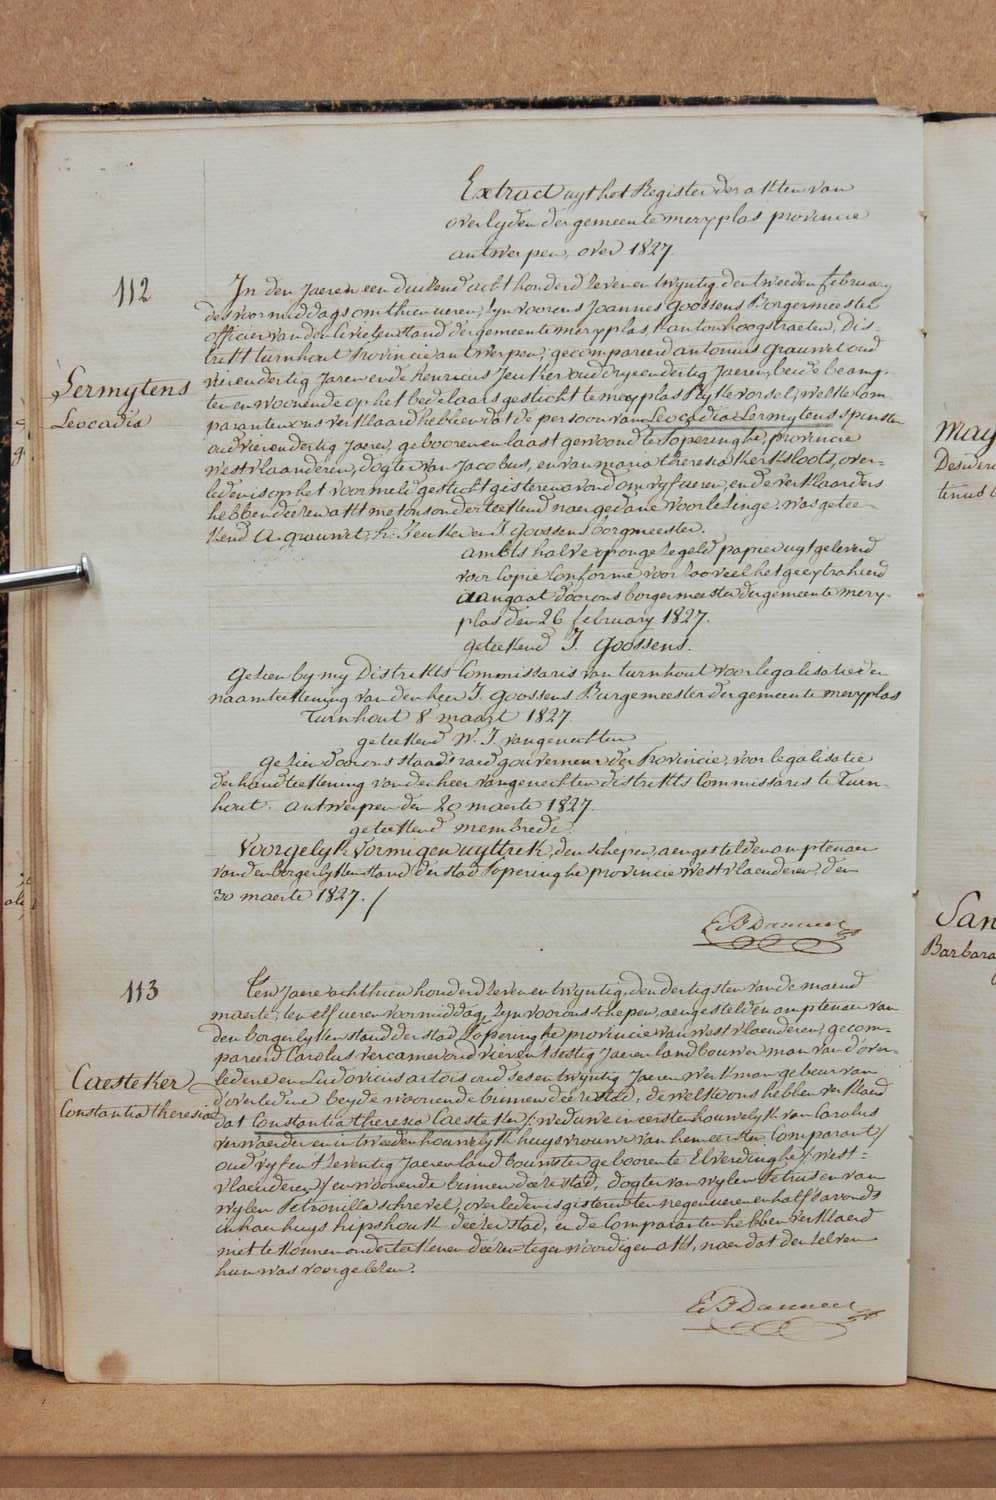 Extract uyt het Register der akten van
overlyden der gemeente meryplas provincie
antwerpen, over 1827.
112
In den Jaeren een duizend acht honderd zeven en twyntig, den tweeden february
des voormiddags om thien ueren, zyn voor ons Joannes Goossens Borgermeester
officier van den Civielen stand der gemeente meryplas, Kanton hoogstraeten, Dis-
trikt turnhout Provincie antwerpen, gecompareerd antonius Grauwet oud
vierendertig Jaeren ende henricus Jeuken oud dryendertig Jaeren, beide beamp-
Sermytens
ten en woonende op het bedelaars gesticht te meryplas Rykevorsel, welke Com-
Leocadia
paranten ons verklaard hebben dat de persoon van Leocadia Sermytens spinster
oud vierendertig Jaeren, gebooren en laast gewoond te Poperinghe, provincie
westvlaanderen, dogter van Jacobus, en van maria theresia Kerksloots, over-
leden is op het voormeld gesticht gisteren avond om vyf ueren, en de verklaarders
hebben deezen akt met ons onderteekend naer gedane voorlezinge. was getee-
kend A. Grauwet, h: Jeuken en J Goossens borgmeester.
ambtshalve op ongezegeld papier uytgeleverd
voor Copie Conforme voor zooveel het geextraheerd
aangaat door ons borgermeester der gemeente mery-
plas den 26 february 1827.
geteekend J. Goossens.
Gezien by my Distrikts Commissaris van turnhout voor legalisatie der
naamteekening van den heer J. Goossens Burgemeester der gemeente meryplas
Turnhout 8 maart 1827.
geteekend W. J. vangenechten
Gezien door ons staadsraed gouverneur der Provincie, voor legalisatie
der handteekening van der heer vangenechten distrikts Commissaris te Turn-
hout. antwerpen den 20 maerte 1827.
geteekend membrede.
Voorgelyk vormigen uyttrek, den schepen, aengestelden amptenaer
van den borgerlyken stand der stad Poperinghe provincie westvlaenderen, den
30 maerte 1827. /
113
Ten Jaere achthien honderd zeven en twyntig, den dertigsten van de maend
maerte, ten elf ueren voormiddag, zyn voor ons schepen, aengestelden amptenaer van
den borgerlyken stand der stad Poperinghe provincie van westvlaenderen, gecom-
pareerd Carolus vercamer oud vier en tsestig Jaeren landbouwer man van d'over-
Caesteker
ledene en Ludovicus artois oud ses en twyntig Jaeren werkman gebeur van
Constantia theresia
d'overledene beyde woonende binnen deeze stad, de welke ons hebben verklaerd
dat Constantia theresia Caesteker / weduwe in eersten houwelyk van Carolus
verwaerde en in tweeden houwelyk huysvrouwe van hem eersten Comparant /
oud vyf en tzeventig Jaeren landbouwster gebooren te Elverdinghe / west-
vlaenderen / en woonende binnen deeze stad, dogter van wylen Petrus en van
wylen Petronilla schrevel, overleden is gisteren ten negen ueren en half s'avonds
in haer huys hipshouk deezer stad, en de Comparanten hebben verklaerd
niet te konnen onderteekenen deezen tegenwoordigen akt, naer dat den zelven
hun was voorgelezen.